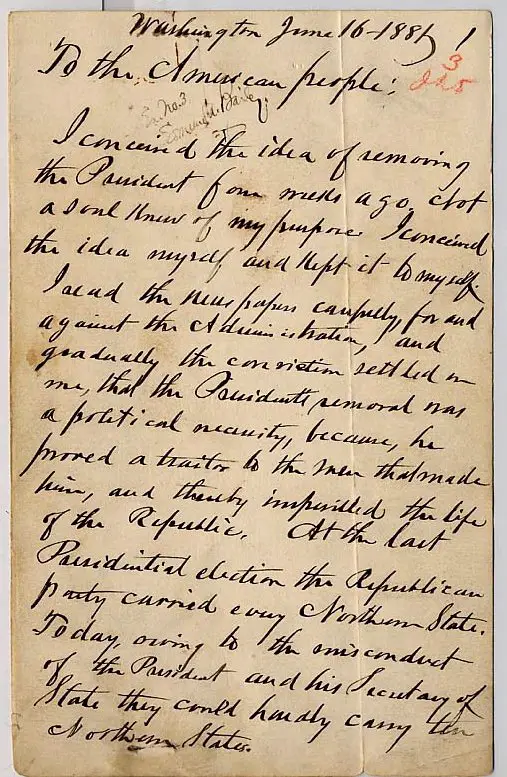 Washington June 16-1881
1
3
To the American people:
Ex. No. 3
I conceived the idea of removing
the President four weeks ago. Not
a soul knew of my purpose. I conceived
the idea myself and kept it to myself.
I read the newspapers carefully, for and
against the Administration, and
gradually the conviction settled on
me, that the President's removal was
a political necessity, because, he
proved a traitor to the men that made
him, and thereby imperilled the life
of the Republic. At the last
Presidential election the Republican
party carried every Northern State.
Today, owing to the misconduct
of the President and his Secretary of
State they could hardly carry ten
Northern States.